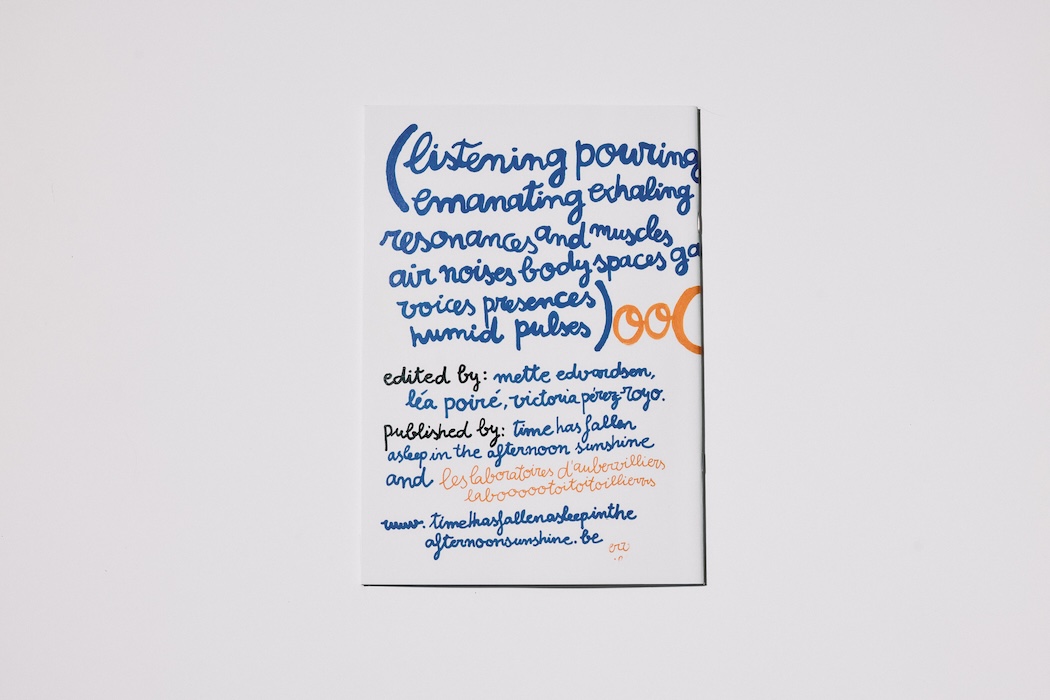 (listening pouring
emanating exhaling
resonances and muscles
air noises body spaces ga
voices presences
humid pulses)oo(
edited by: mette edvardsen,
léa poiré, victoria pérez-royo.
published by: time has fallen
asleep in the afternoon sunshine
and les laboratoires d'aubervilliers
labooootoitoitoillierrs
www.timehasfallenasleepinthe
afternoonsunshine.be